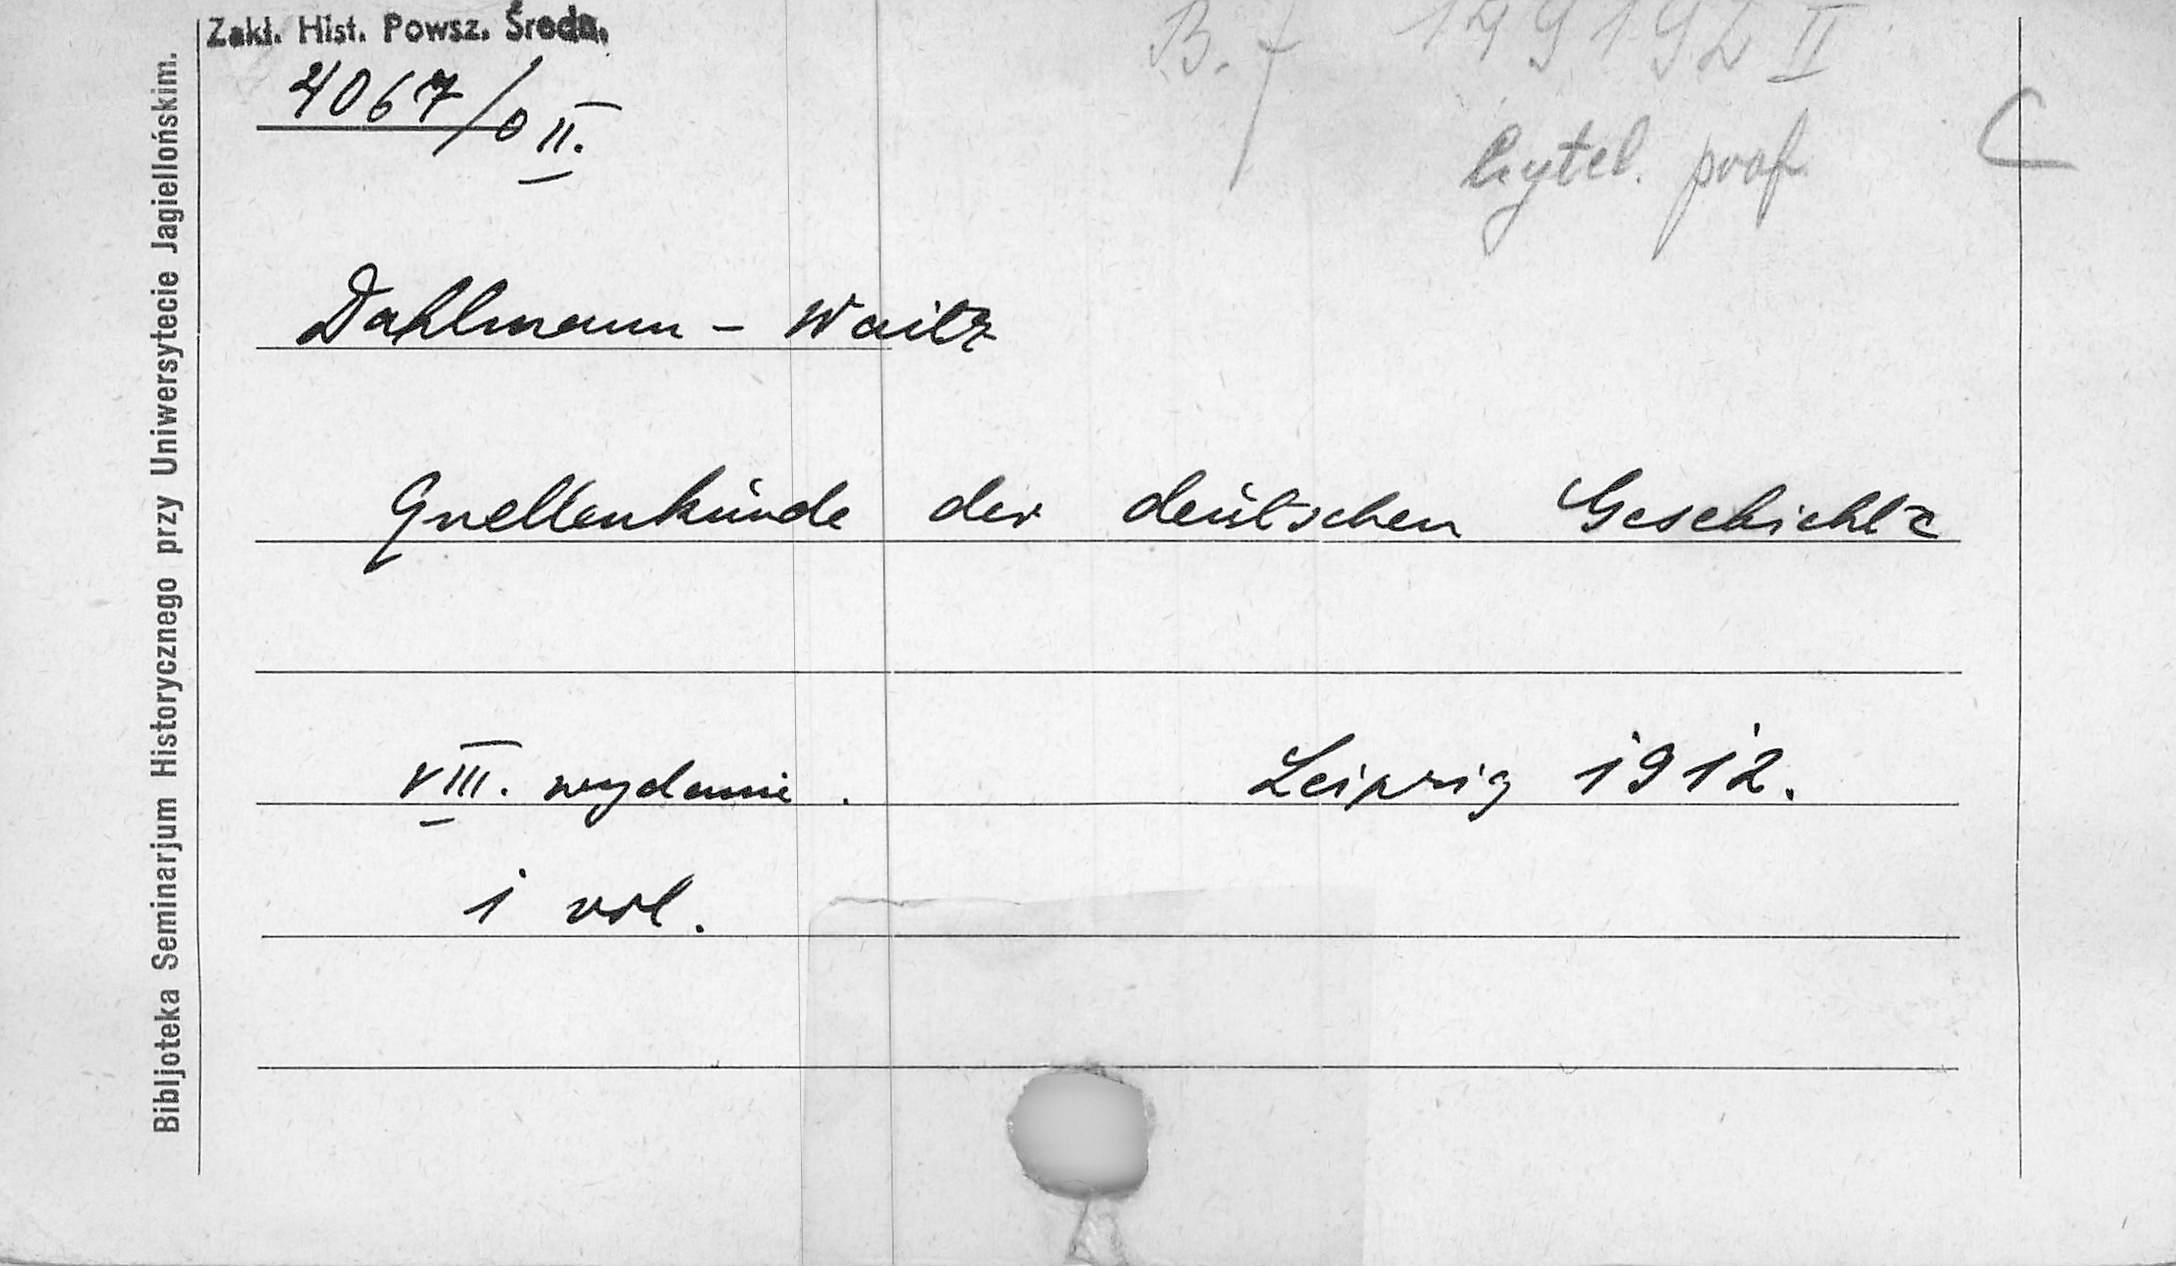 Zakł. Hist. Powsz. Średn.
B. f 149192 II
4067/0 II.
Czytel. prof
C
Dahlmann - Waitz
Quellenkunde der deutschen Geschichte
VIII. wydanie. Leipzig 1912.
1 vol.
Bibljoteka Seminarjum Historycznego przy Uniwersytecie Jagiellońskim.